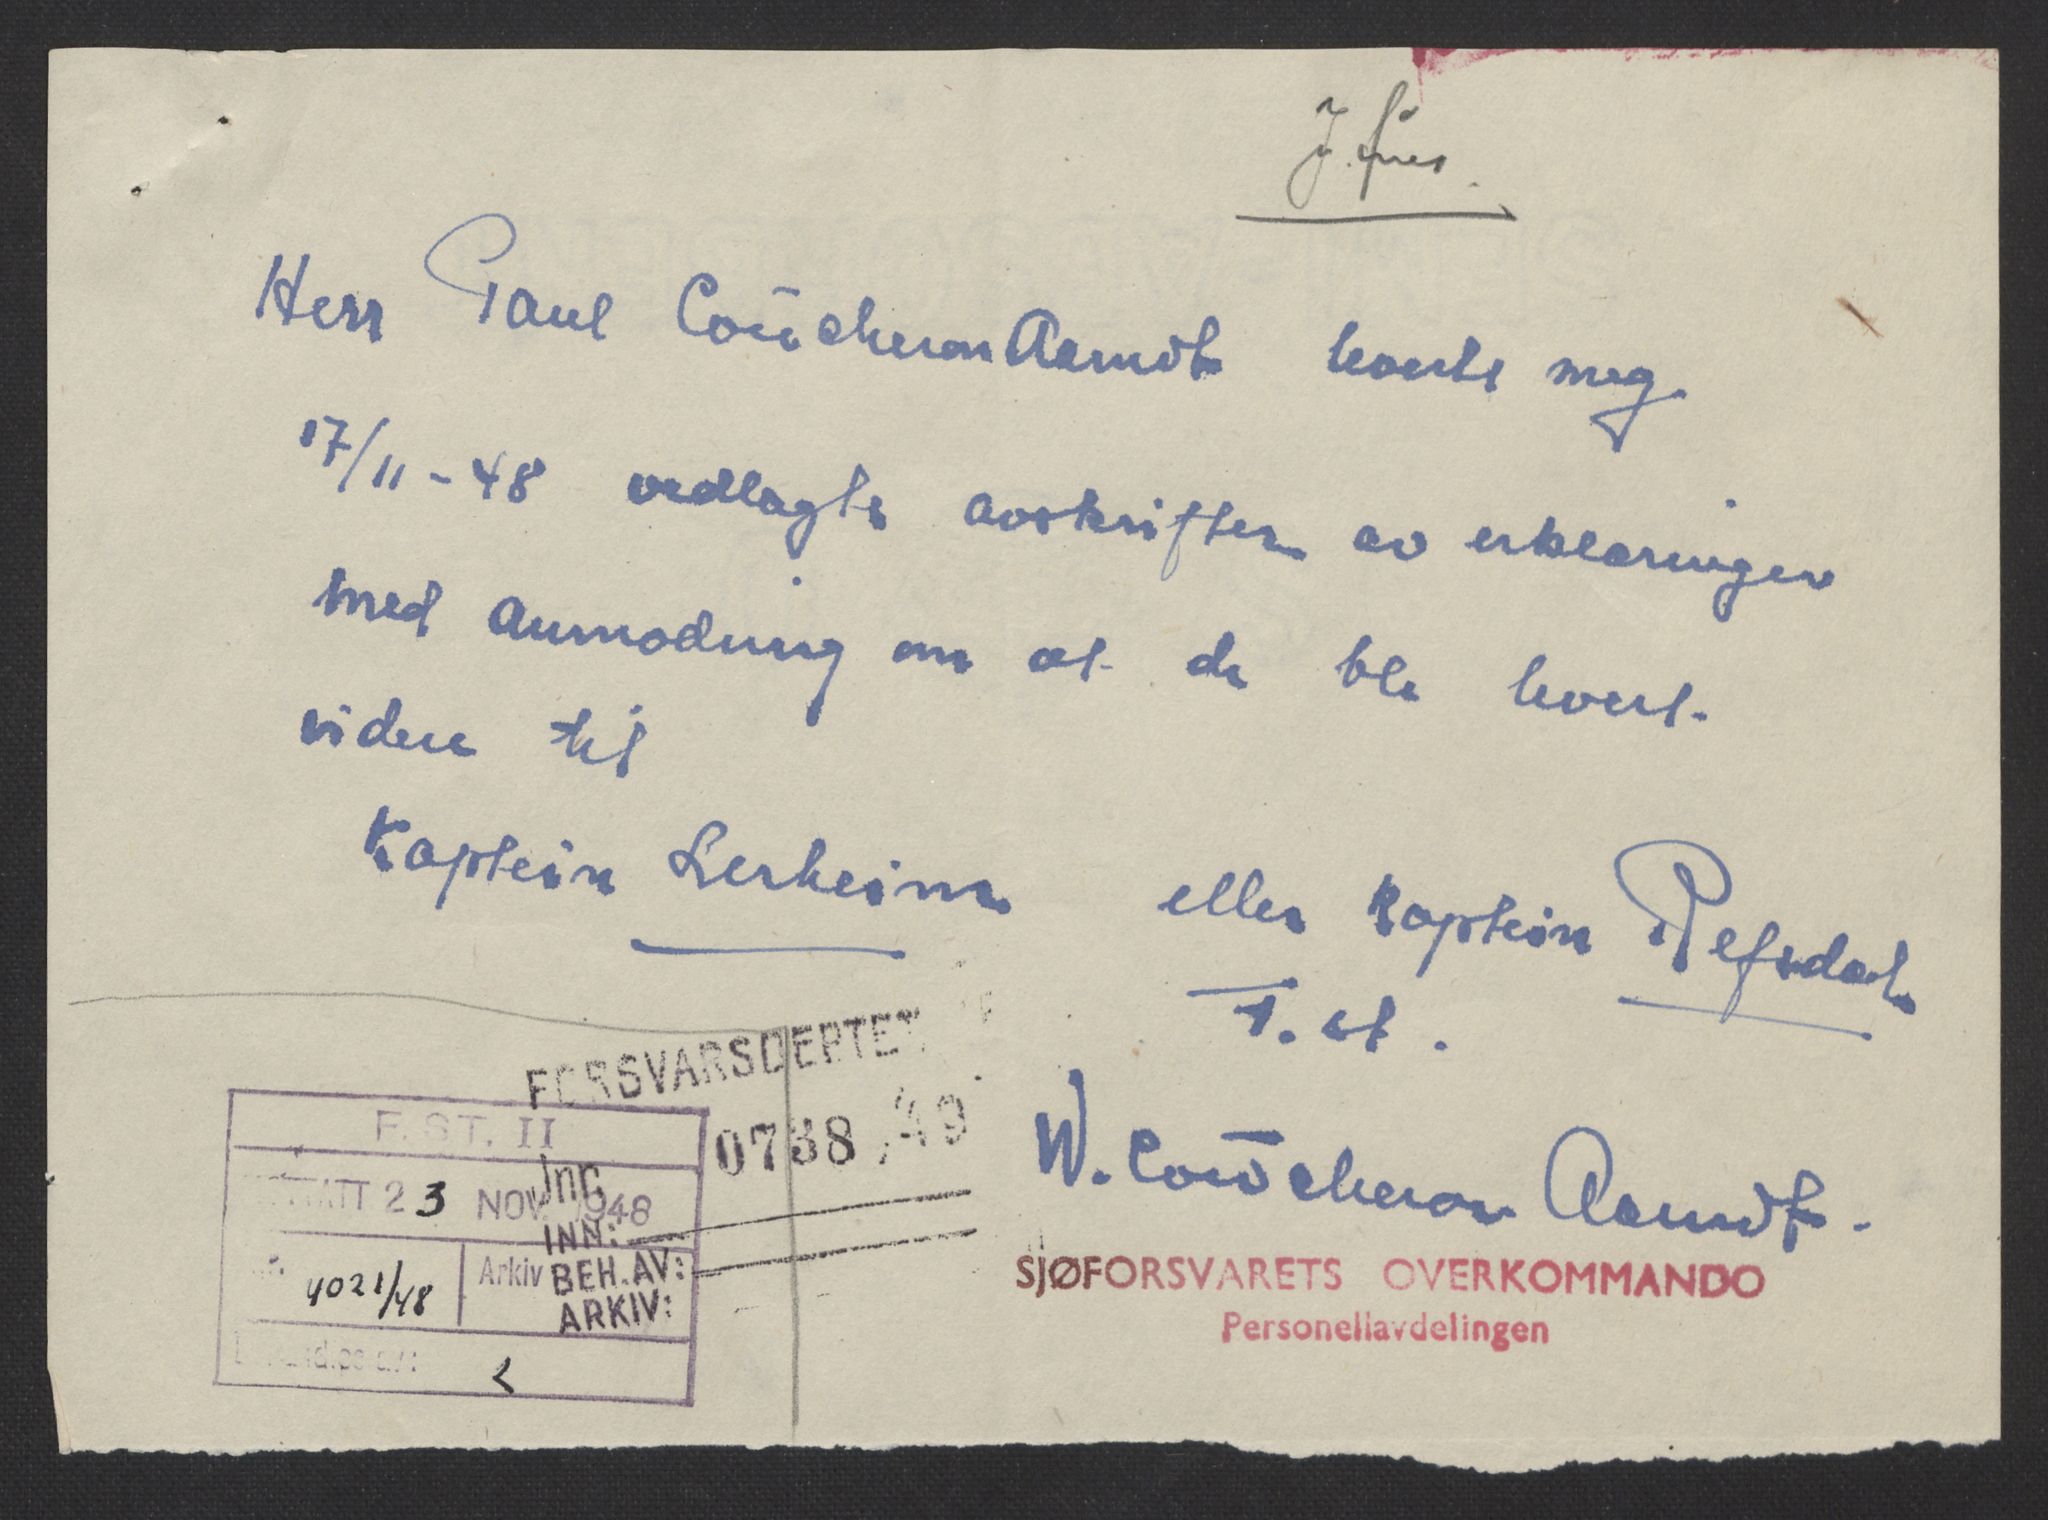 Herr Paul Coucheron Aamodt leverte meg
17/11-48 vedlagte avskrifter av erklæringer
med anmodning om at de ble levert
videre til
Kaptein Lerheim eller Kaptein Refsdal
F. st.
W. Coucheron Aamodt.
SJØFORSVARETS OVERKOMMANDO
Personellavdelingen
FORSVARSDEPTET
0738 '49
Jnr.
INN:
BEH. AV:
ARKIV:
F. ST. II
MOTTATT 23 NOV. 1948
4021/48 Arkiv